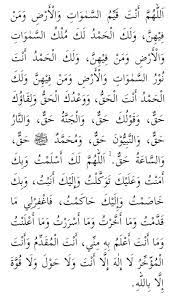 اَللّٰهُمَّ أَنْتَ قَيِّمُ السَّمٰوَاتِ وَالْأَرْضِ وَمَنْ
فِيْهِنَّ، وَلَكَ الْحَمْدُ لَكَ مُلْكُ السَّمٰوَاتِ
وَالْأَرْضِ وَمَنْ فِيْهِنَّ، وَلَكَ الْحَمْدُ أَنْتَ
نُوْرُ السَّمٰوَاتِ وَالْأَرْضِ وَمَنْ فِيْهِنَّ وَلَكَ
الْحَمْدُ أَنْتَ الْحَقُّ، وَوَعْدُكَ الْحَقُّ وَلِقَاؤُكَ
حَقٌّ، وَقَوْلُكَ حَقٌّ، وَالْجَنَّةُ حَقٌّ، وَالنَّارُ
حَقٌّ، وَالنَّبِيُّوْنَ حَقٌّ، وَمُحَمَّدٌ ﷺ حَقٌّ،
وَالسَّاعَةُ حَقٌّ. اَللّٰهُمَّ لَكَ أَسْلَمْتُ وَبِكَ
آمَنْتُ وَعَلَيْكَ تَوَكَّلْتُ وَإِلَيْكَ أَنَبْتُ، وَبِكَ
خَاصَمْتُ وَإِلَيْكَ حَاكَمْتُ، فَاغْفِرْلِي مَا
قَدَّمْتُ وَمَا أَخَّرْتُ وَمَا أَسْرَرْتُ وَمَا أَعْلَنْتُ
وَمَا أَنْتَ أَعْلَمُ بِهِ مِنِّي، أَنْتَ الْمُقَدِّمُ وَأَنْتَ
الْمُؤَخِّرُ لَا إِلٰهَ إِلَّا أَنْتَ وَلَا حَوْلَ وَلَا قُوَّةَ
إِلَّا بِاللّٰهِ.